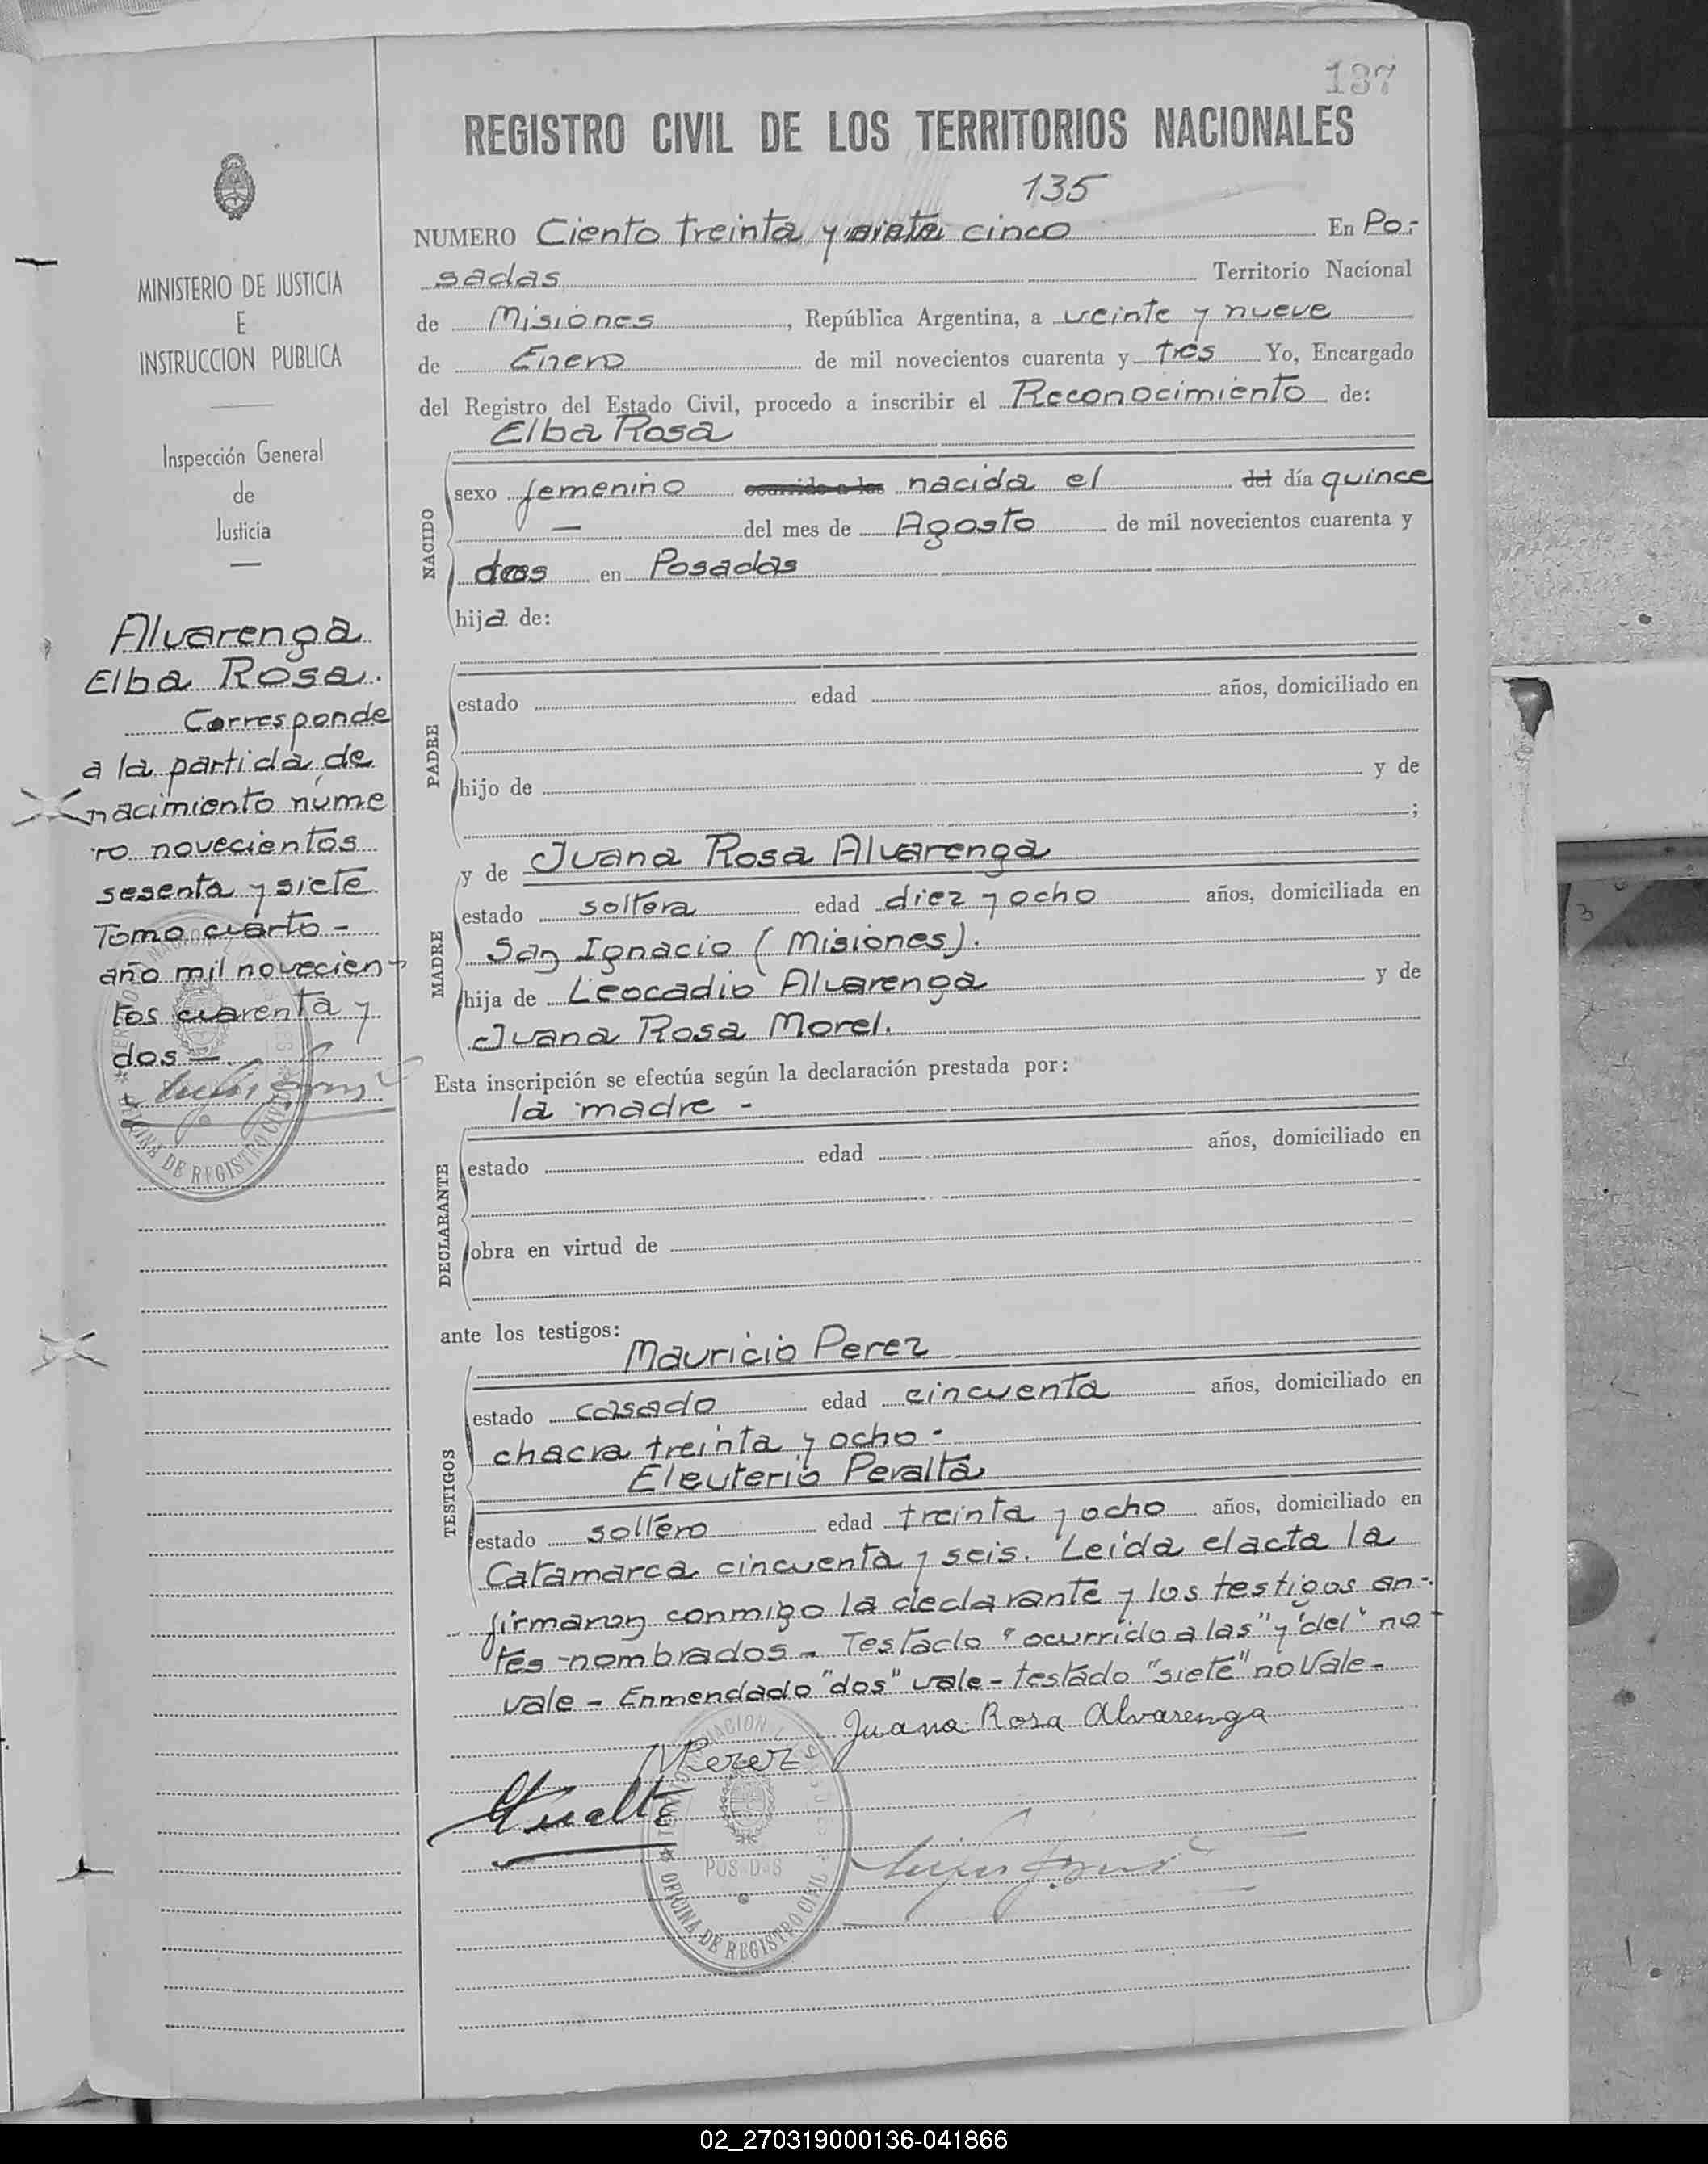 137
REGISTRO CIVIL DE LOS TERRITORIOS NACIONALES
135
NUMERO Ciento treinta y siete cinco En Po-
sadas Territorio Nacional
de Misiones, República Argentina, a veinte y nueve
de Enero de mil novecientos cuarenta y tres Yo, Encargado
del Registro del Estado Civil, procedo a inscribir el Reconocimiento de:
Elba Rosa
NACIDO
sexo femenino ocurrido a las nacida el del día quince
— del mes de Agosto de mil novecientos cuarenta y
dos en Posadas
hija de:
PADRE
estado edad años, domiciliado en
hijo de y de
;
MADRE
y de Juana Rosa Alvarenga
estado soltera edad diez y ocho años, domiciliada en
San Ignacio (Misiones).
hija de Leocadio Alvarenga y de
Juana Rosa Morel.
Esta inscripción se efectúa según la declaración prestada por:
la madre -
DECLARANTE
estado edad años, domiciliado en
obra en virtud de
ante los testigos:
TESTIGOS
Mauricio Perez
estado casado edad cincuenta años, domiciliado en
chacra treinta y ocho -
Eleuterio Peralta
estado soltero edad treinta y ocho años, domiciliado en
Catamarca cincuenta y seis. Leída el acta la
firmaron conmigo la declarante y los testigos an-
tes nombrados - Testado "ocurrido a las" y "del" no
vale - Enmendado "dos" vale - testado "siete" no vale -
Juana Rosa Alvarenga
MPerez
POSADAS
OFICINA DE REGISTRO CIVIL
MINISTERIO DE JUSTICIA
E
INSTRUCCION PUBLICA
Inspección General
de
Justicia
Alvarenga
Elba Rosa.
Corresponde
a la partida de
nacimiento núme
ro novecientos
sesenta y siete
Tomo cuarto -
año mil novecien-
tos cuarenta y
dos —
OFICINA DE REGISTRO CIVIL
3
02_270319000136-041866